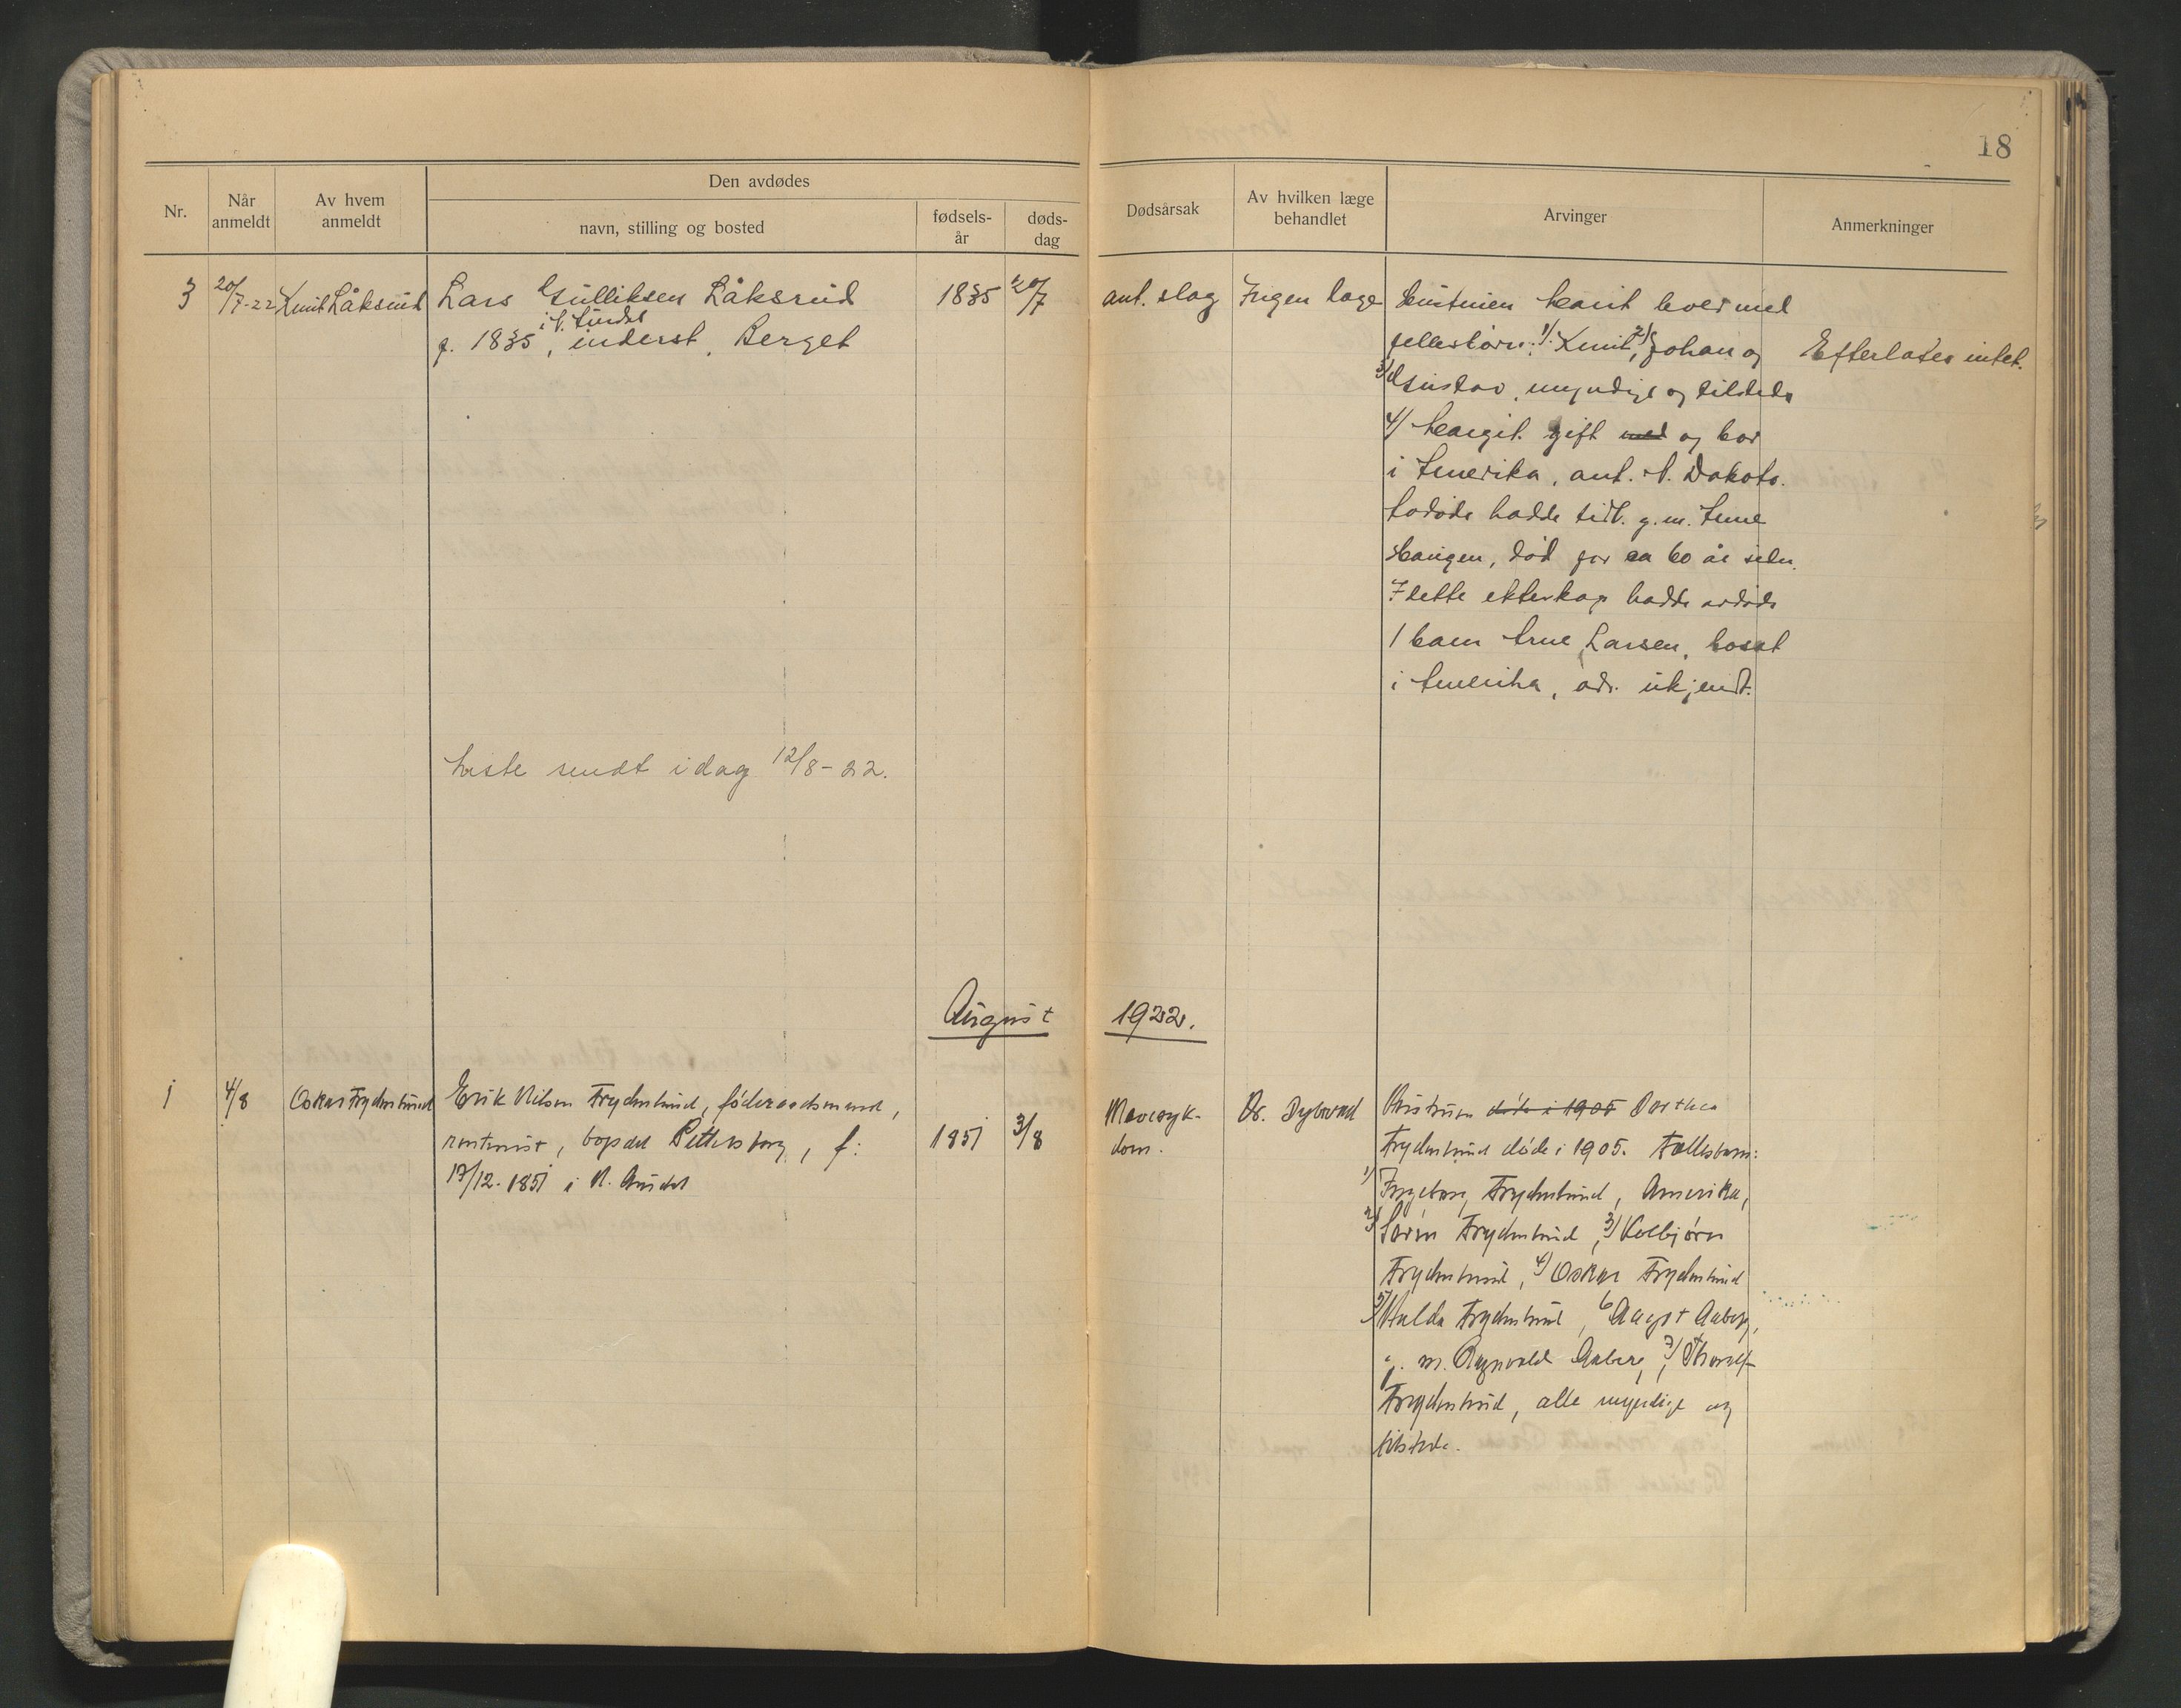 18
Nr.
Når anmeldt
Av hvem anmeldt
Den avdødes
navn, stilling og bosted
fødsels-år
døds-dag
Dødsårsak
Av hvilken læge behandlet
Arvinger
Anmerkninger
3 20/7-22 Knut Låksrud Lars Gulliksen Låksrud 1835 20/7 ant. slag Ingen læge
i N. Aurdal
f. 1835, inderst, Berget
Hustruen Marit lever med
fellesbørn: 1/ Knut, 2/ Johan og
3/ Gustav, myndige og tilstede
4/ Margit gift med og bor
i Amerika, ant. N. Dakota.
Avdøde hadde tidl. g. m. Anne
Haugen, død for ca 60 år siden.
I dette ekteskap hadde avdøde
1 barn Arne Larsen, bosat
i Amerika, adr. ukjendt.
Efterlates intet.
Liste sendt idag 12/8-22.
August 1922.
1 4/8 Oskar Frydenlund Erik Nilsen Frydenlund, føderaadsmand, 1851 3/8 Mavesyk-
dom. Dr. Dybwad
rentenist, bopæl Pettersborg, f:
17/12-1851 i N. Aurdal
Hustruen døde i 1905 Dorthea
Frydenlund døde i 1905. Fællesbarn:
1/ Ingeborg Frydenlund, Amerika,
2/ Søren Frydenlund, 3/ Kolbjørn
Frydenlund, 4/ Oskar Frydenlund
5/ Hulda Frydenlund, 6 Aagot Aaberg,
g. m. Ragnvald Aaberg, 7/ Thoralf
Frydenlund, alle myndige og
tilstede.